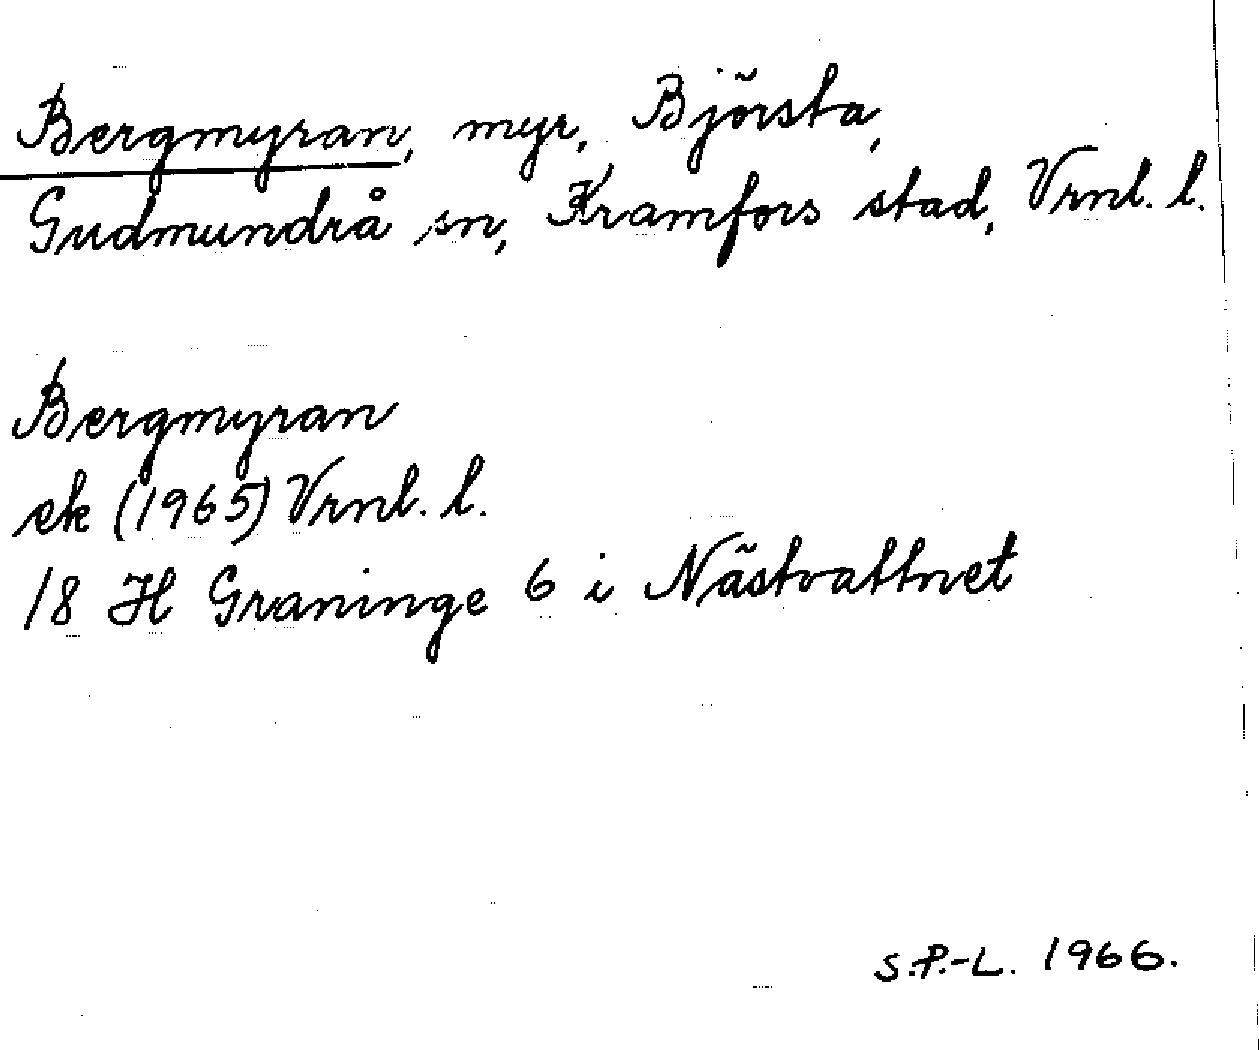 Bergmyran, myr, Björsta,
Gudmundrå sn, Kramfors stad, Vrnl. l.
Bergmyran
ek (1965) Vrnl. l.
18 H Graninge 6 i Nästvattnet
S.P.-L. 1966.